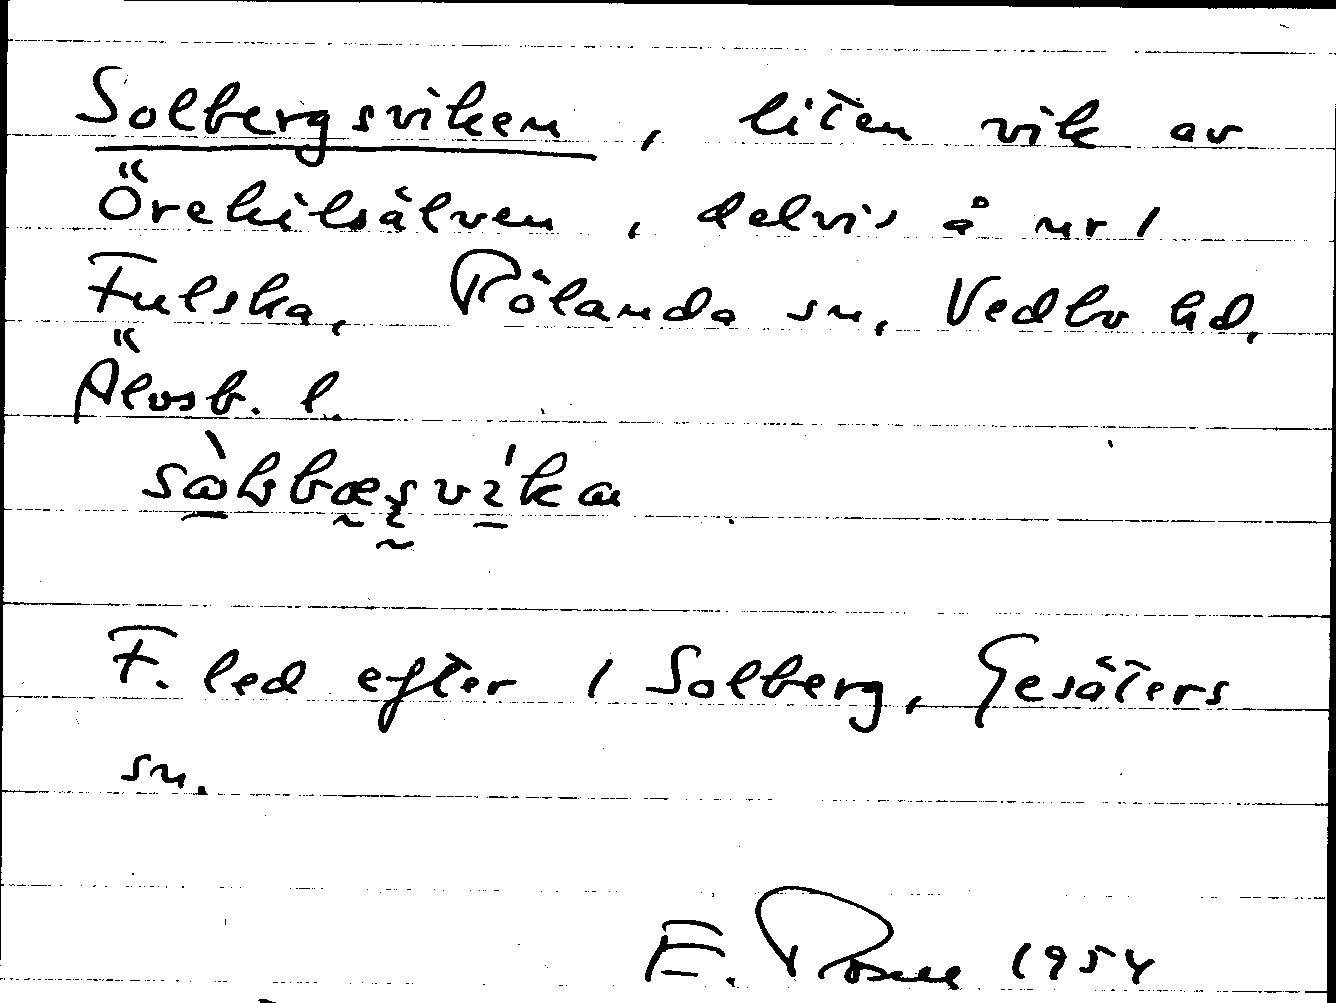 Solbergsviken, liten vik av
Örekilsälven, delvis å nr 1
Fulska, Rölanda sn, Vedbo hd,
Älvsb. l.
F. led efter 1 Solberg, Gesäters
sn.
E. Rosell 1954